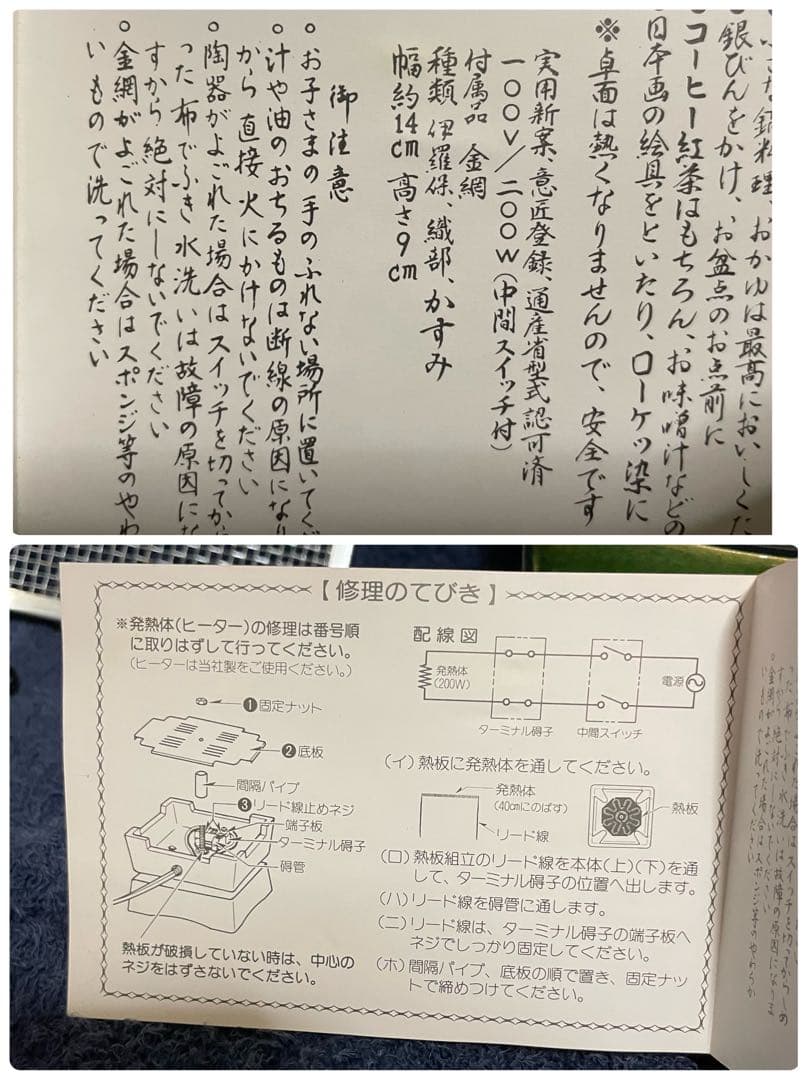 小さな鍋料理、おかゆは最高においしくだ
銀びんをかけ、お盆点のお点前に
コーヒー紅茶はもちろん、お味噌汁などの
日本画の絵具をといたり、ローケツ染に
※卓面は熱くなりませんので、安全です
実用新案、意匠登録、通産省型式認可済
一〇〇V/二〇〇W(中間スイッチ付)
付属品 金網
種類 伊羅保、織部、かすみ
幅約14cm 高さ9cm
御注意
○お子さまの手のふれない場所に置いてく
○汁や油のおちるものは断線の原因になり
から直接火にかけないでください
○陶器がよごれた場合はスイッチを切ってか
った布でふき水洗いは故障の原因にな
すから絶対にしないでください
○金網がよごれた場合はスポンジ等のやわ
いもので洗ってください
【修理のてびき】
※発熱体(ヒーター)の修理は番号順
に取りはずして行ってください。
(ヒーターは当社製をご使用ください。)
❶固定ナット
❷底板
間隔パイプ
❸リード線止めネジ
端子板
ターミナル碍子
碍管
熱板が破損していない時は、中心の
ネジをはずさないでください。
配線図
発熱体
(200W)
電源
ターミナル碍子
中間スイッチ
(イ)熱板に発熱体を通してください。
発熱体
(40cmにのばす)
リード線
熱板
(ロ)熱板組立のリード線を本体(上)(下)を通
して、ターミナル碍子の位置へ出します。
(ハ)リード線を碍管に通します。
(ニ)リード線は、ターミナル碍子の端子板へ
ネジでしっかり固定してください。
(ホ)間隔パイプ、底板の順で置き、固定ナッ
トで締めつけてください。
った布でふき水洗いは故障の原因になりま
すから絶対にしないでください
○金網がよごれた場合はスポンジ等のやわらか
いもので洗ってください